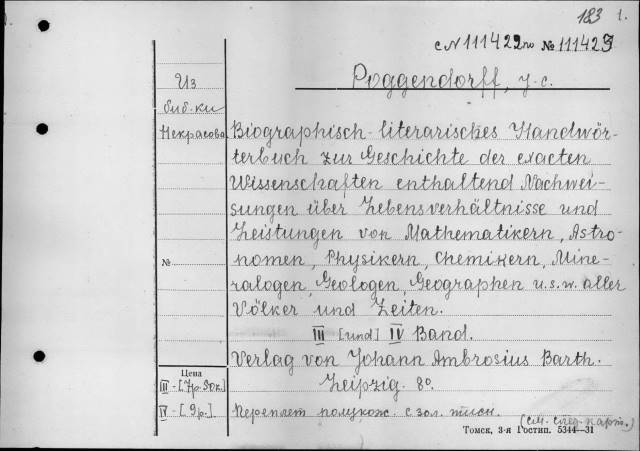 183 1.
с N 111422 по № 111429
Из
биб-ки
Некрасова
Poggendorff, J. C.
Biographisch-literarisches Handwör-
terbuch zur Geschichte der exacten
Wissenschaften enthaltend Nachwei-
sungen über Lebensverhältnisse und
Leistungen von Mathematikern, Astro-
№
nomen, Physikern, Chemikern, Mine-
ralogen, Geologen, Geographen u.s.w. aller
Völker und Zeiten.
III [und] IV Band.
Verlag von Johann Ambrosius Barth.
Leipzig. 8o.
Цена
III - [7р. 90к.]
IV - [9р.]
Переплет полукож. с зол. тисн.
(см. след. карт.)
Томск, 3-я Гостип. 5344—31